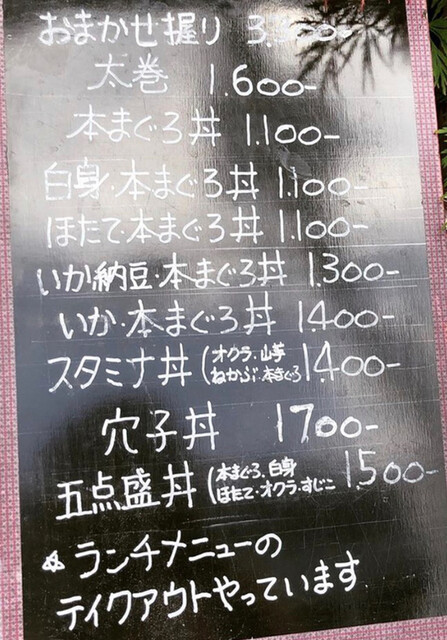 おまかせ握り 3.300-
太巻 1.600-
本まぐろ丼 1.100-
白身・本まぐろ丼 1.100-
ほたて・本まぐろ丼 1.100-
いか納豆・本まぐろ丼 1.300-
いか・本まぐろ丼 1.400-
スタミナ丼 (オクラ・山芋 1.400-
ねかぶ・本まぐろ
穴子丼 1700-
五点盛丼 (本まぐろ、白身 1.500-
ほたて・オクラ・すじこ
☆ ランチメニューの
ティクアウトやっています